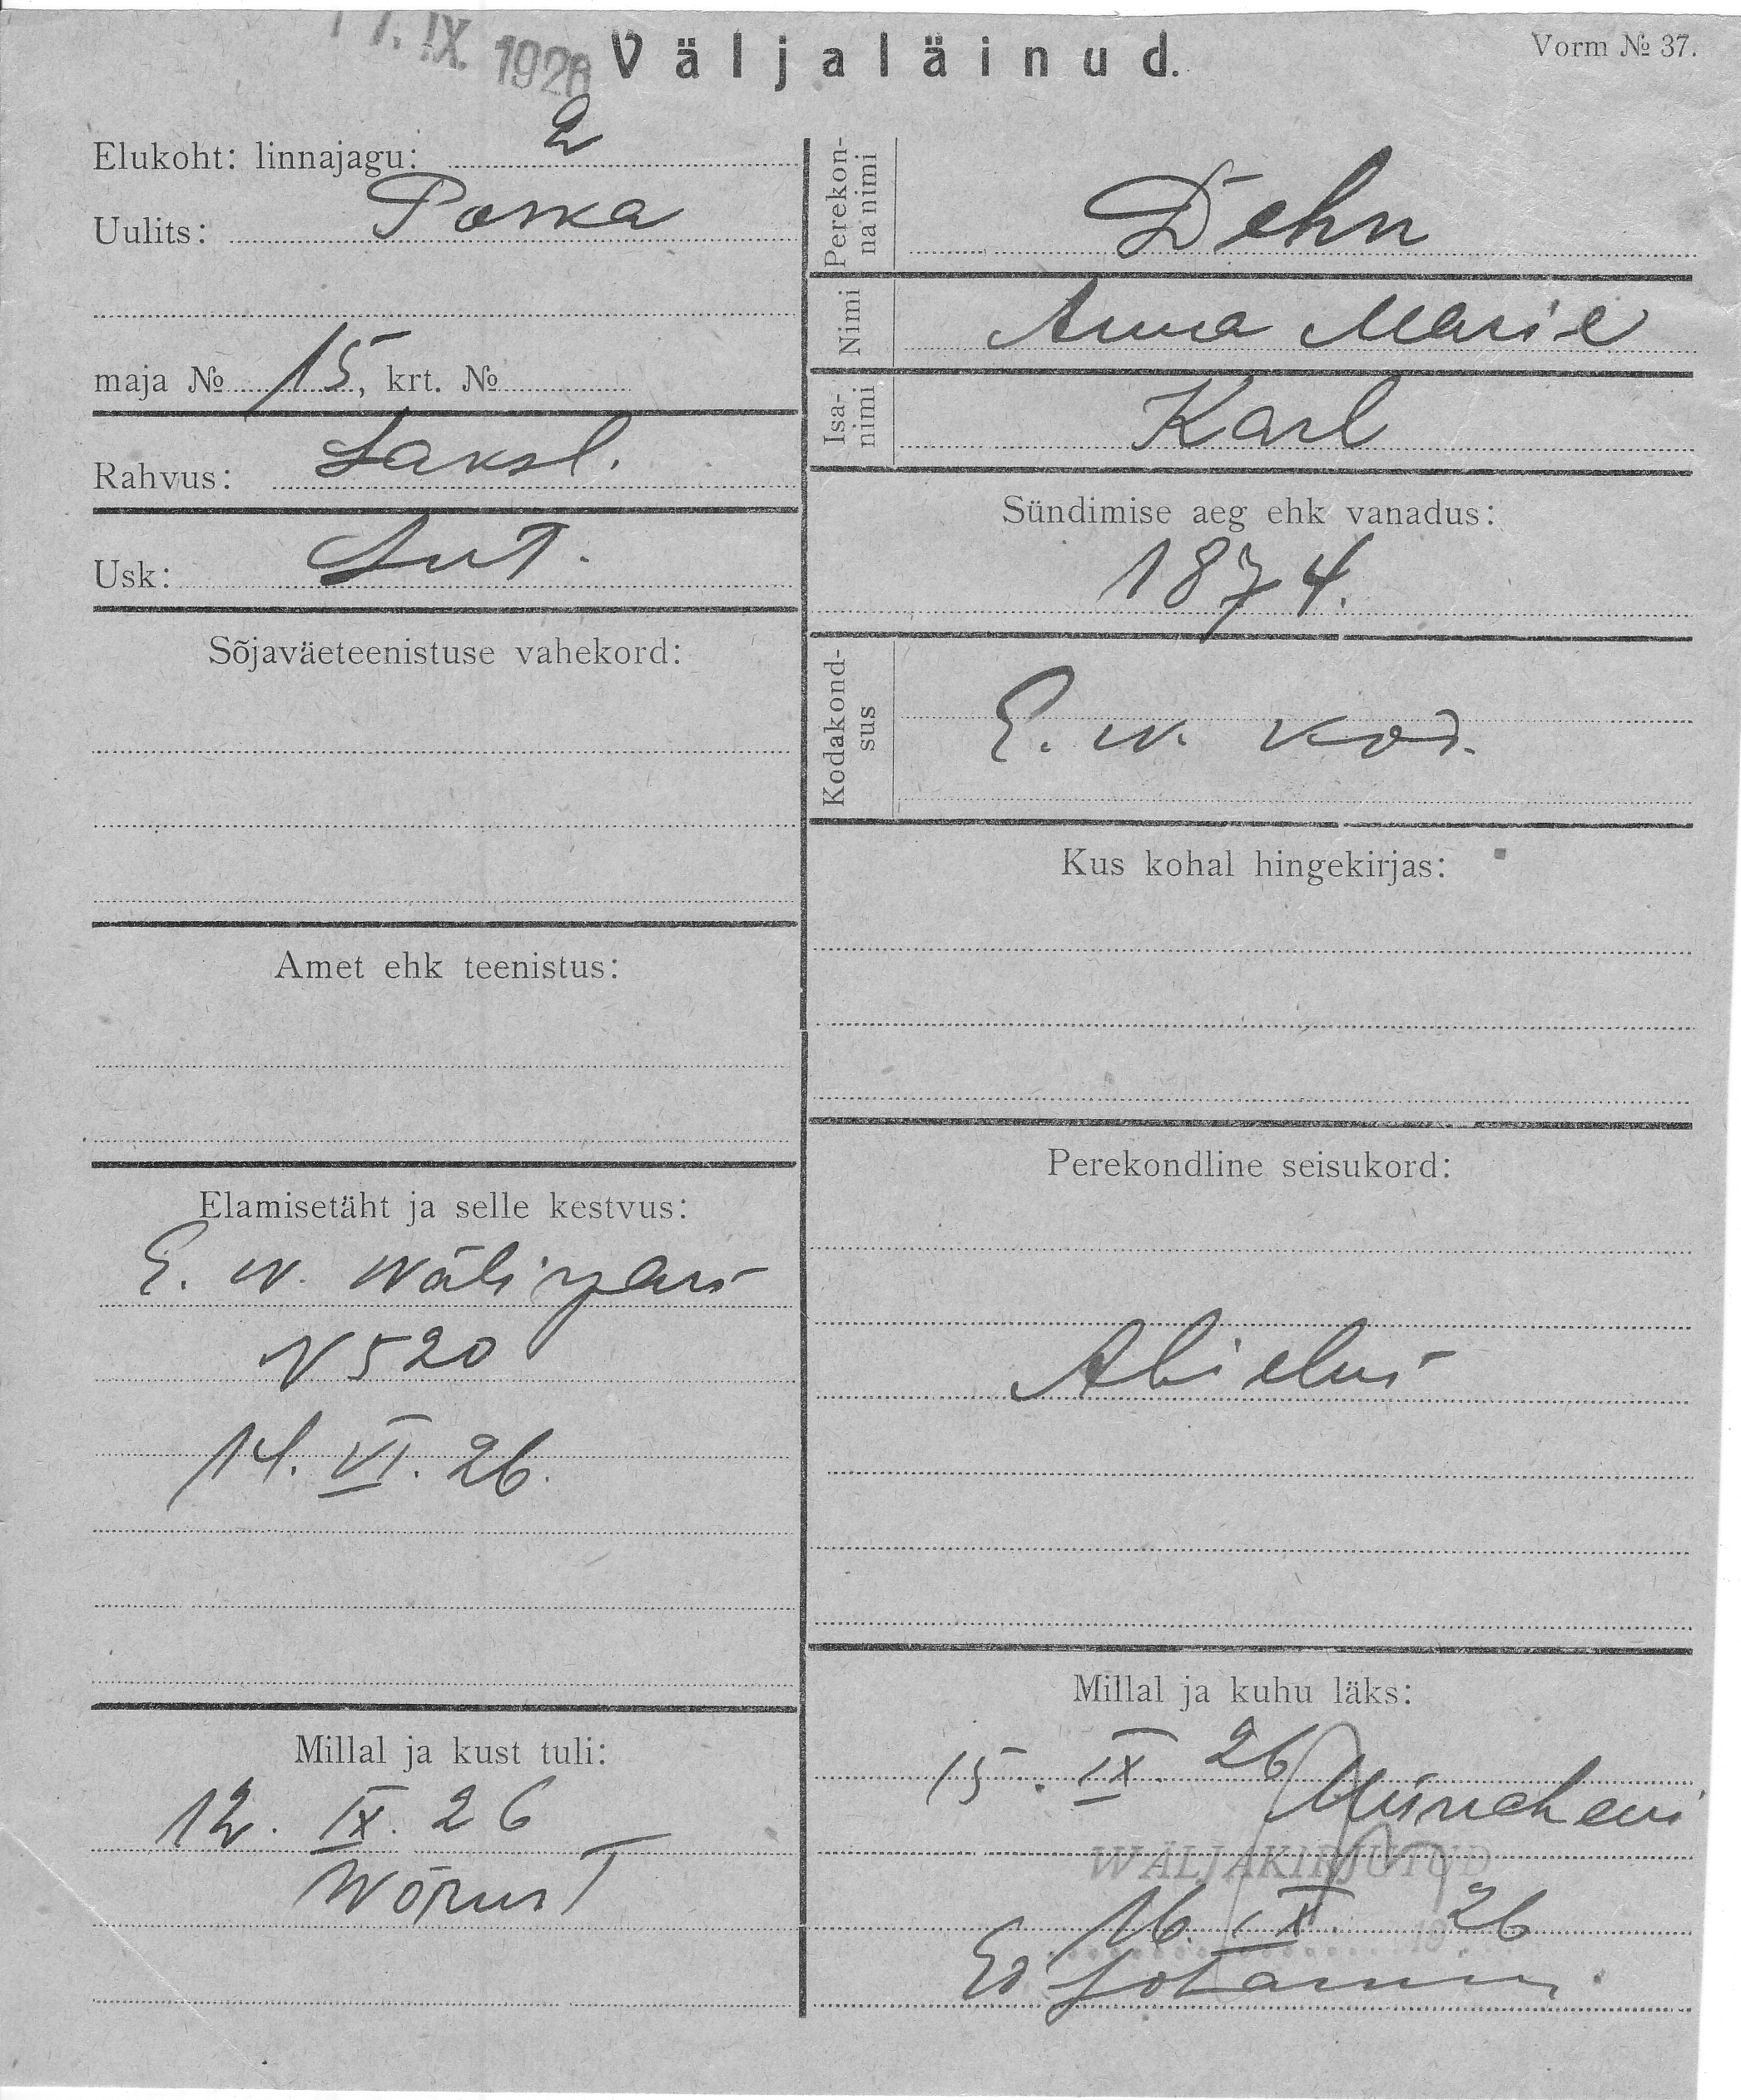 17. IX. 1926
Väljaläinud.
Vorm № 37.
Elukoht: linnajagu: 2
Uulits: Poska
maja № 15, krt. №
Rahvus: Saksl.
Usk: Lut.
Sõjaväeteenistuse vahekord:
Amet ehk teenistus:
Elamisetäht ja selle kestvus:
E. w. wälispass
N 520
14. VI. 26.
Millal ja kust tuli:
12. IX. 26
Wõrust
Perekon-
na nimi
Dehn
Nimi
Anna Marie
Isa-
nimi
Karl
Sündimise aeg ehk vanadus:
1874.
Kodakond-
sus
E. w. kod.
Kus kohal hingekirjas:
Perekondline seisukord:
Abielus
Millal ja kuhu läks:
15. IX. 26 Müncheni
WÄLJAKIRJUTUD
16. IX 26